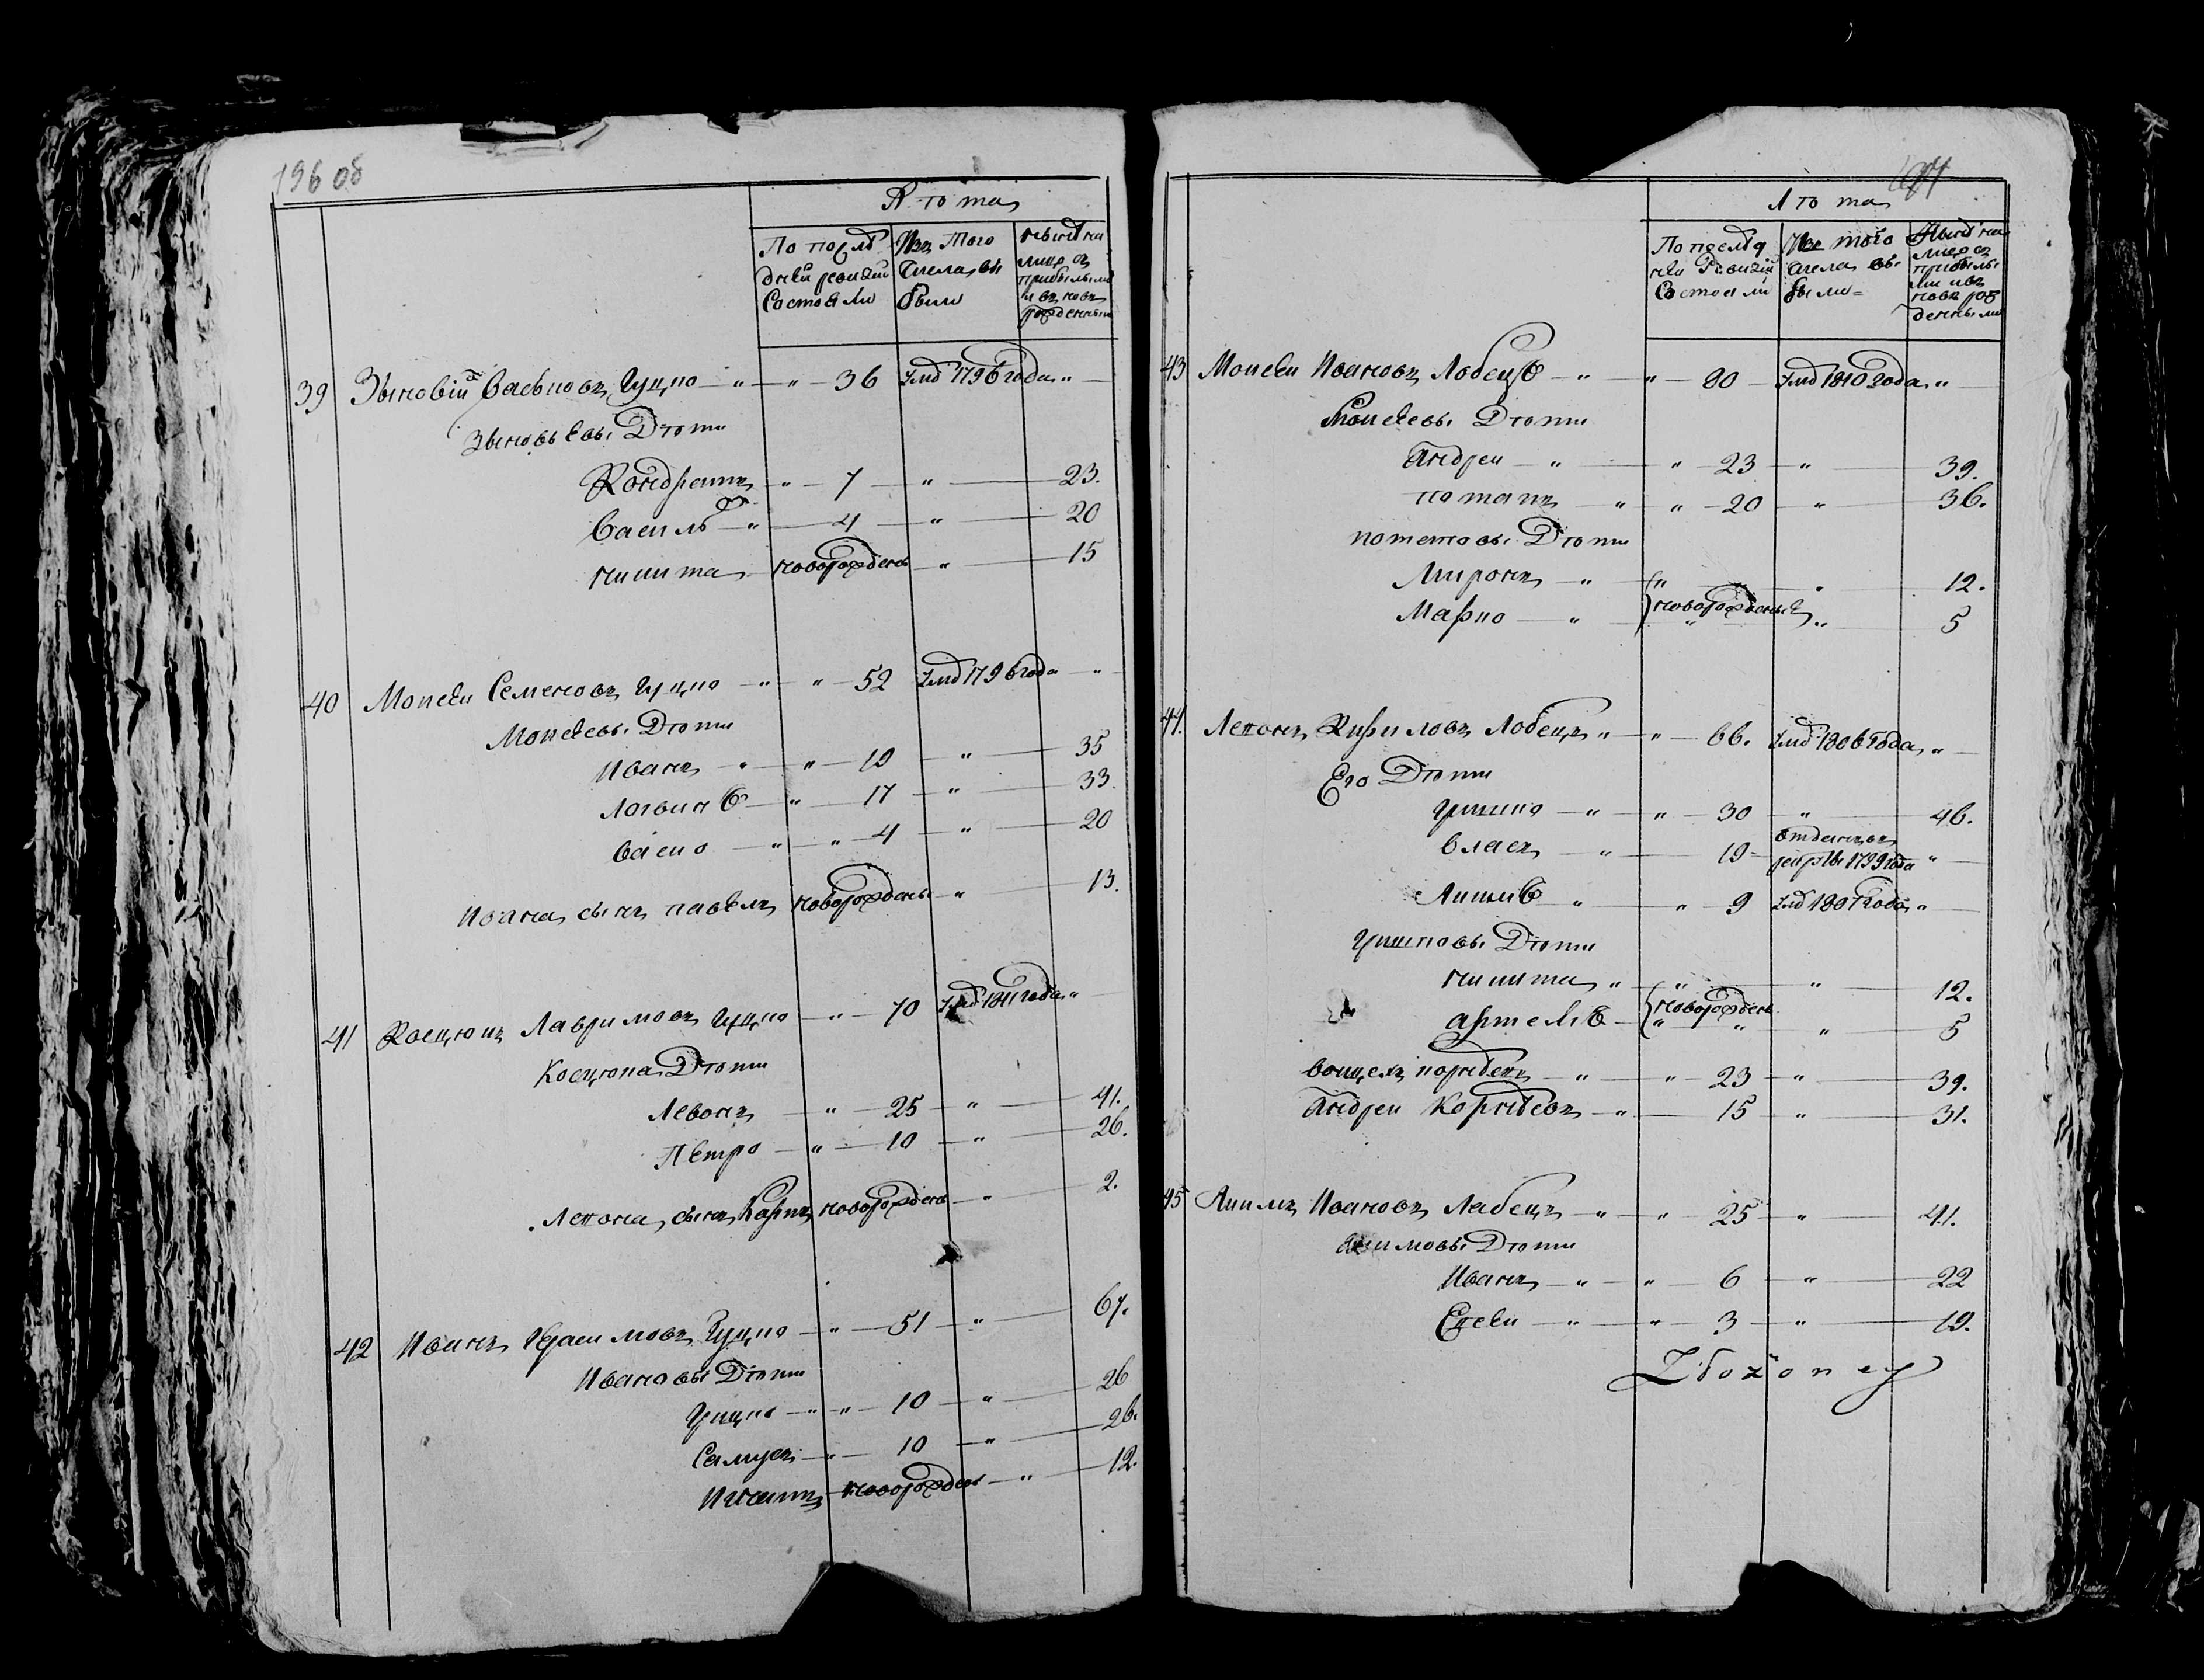 196 об
Лѣта
По послѣ
дней ревизии
Состояли
Изъ того
числа вы
были
Нынѣ на
лицо съ
прибылыми
и въ новь
рожденными
39 Зыновiй Васьковъ Гуцко " " 36 Умр 1796 года "
Зыновьевы Дѣти
Кондратъ " 7 " 23.
Василь " 4 " 20
Микита новорожденъ " 15
40 Моисей Семеновъ Гуцко " " 52 Умр 1796 года "
Моисеевы Дѣти
Иванъ " " 19 " 35
Логвинъ " 17 " 33.
Васко " " 4 " 20
Ивана сынъ павелъ новорожденъ " 13.
41 Косцюкъ Лавриновъ Гуцко " 70 Умр 1811 года "
Косцюка Дѣти
Левонъ " 25 " 41.
Петро " 10 " 26.
Левона сынъ Карпъ новорожденъ " 2.
42 Иванъ Герасимовъ Гуцко " 51 " 67.
Ивановы Дѣти
Грицко " " 10 " 26
Самусь " 10 " 26.
Игнатъ новорожденъ " 12.
Лѣта
По послѣд
ней Ревизiи
Состояли
Изъ того
числа вы
были
Нынѣ на
лицо съ
прибылы
ми и въ
новь рож
денными
43 Моисей Ивановъ Лобецъ " " 90 Умр 1810 года "
Моисеевы Дѣти
Андрей " " 23 " 39.
Потапъ " " 20 " 36.
Потаповы Дѣти
Миронъ " " " 12.
новорожденные
Марко " " " 5
44. Левонъ Кириловъ Лобецъ " " 66. Умр 1806 года "
Его Дѣти
Гришко " " 30 " 46.
Власъ " 19 отданъ въ
рекруты 1799 года "
Акимъ " " 9 Умр 1807 года "
Гришковы Дѣти
Микита " " " 12.
новорожден
Артемъ " " " 5
Войцехъ корнѣевъ " " 23 " 39.
Андрей Корнѣевъ " 15 " 31.
45 Акимъ Ивановъ Лабецъ " " 25 " 41.
Акимовы Дѣти
Иванъ " " 6 " 22
Евсей " " 3 " 19.